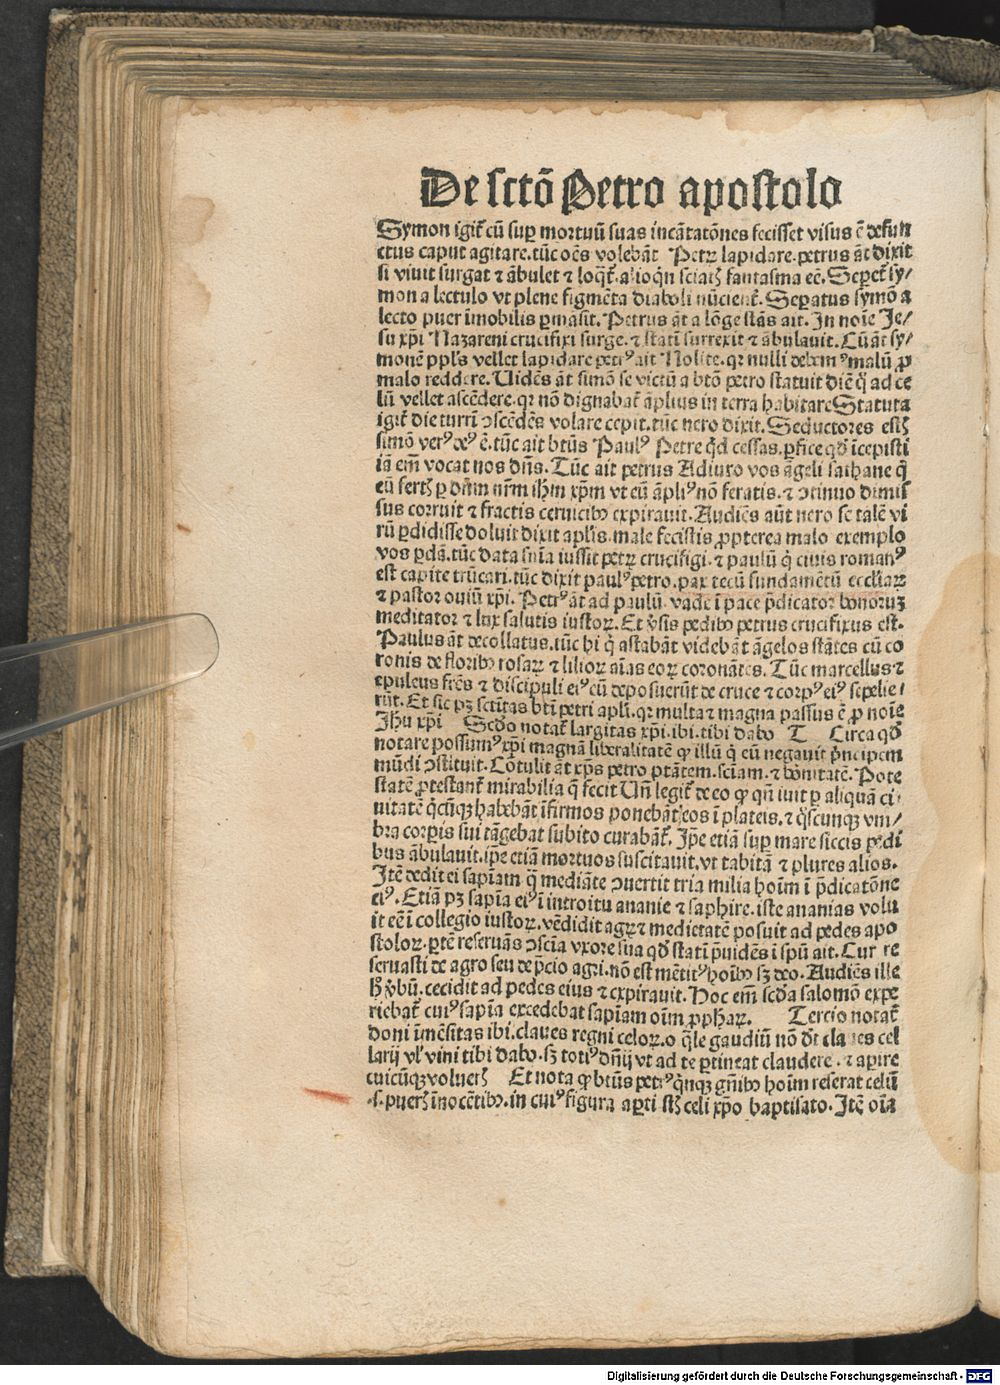 De sctō Petro apostolo
Symon igit᷑ cū sup mortuū suas incātatōnes fecisset visus ē defun
ctus caput agitare. tūc oēs volebāt Petrꝝ lapidare. petrus āt dixit
si viuit surgat ⁊ ābulet ⁊ loqt᷑. alioqn sciatꝭ fantasma eē. Sepet᷑ sy/
mon a lectulo vt plene figmēta diaboli nūcient᷑. Sepatus symō a
lecto puer īmobilis pmāsit. Petrus āt a lōge stās ait. In noīe Je/
su xp̄i Nazareni crucifixi surge. ⁊ statī surrexit ⁊ ābulauit. Cū āt sy/
monē ppl̄s vellet lapidare petrꝰ ait Nolite. qꝛ nulli debemꝰ malū ꝓ
malo reddere. Uidēs āt simō se victū a btō petro statuit diē q̄ ad ce
lū vellet ascēdere. qꝛ nō dignabat᷑ āplius in terra habitare Statuta
igit᷑ die turrī ꝯscēdēs volare cepit. tūc nero dixit. Seductores estꝭ
simō verꝰ deꝰ ē. tūc ait btūs Paulꝰ Petre qd cessas. ꝑfice qd̄ īcepisti
iā em̄ vocat nos dn̄s. Tūc ait petrus Adiuro vos āgeli sathane q̄
eū fertꝭ ꝑ dn̄m nr̄m ihm̄ xp̄m vt eū āpliꝰ nō feratis. ⁊ ꝯtinuo dimis
sus corruit ⁊ fractis ceruicibꝫ expirauit. Audiēs aūt nero se talē vi
rū ꝑdidisse doluit dixit apl̄is. male fecistis ꝓpterea malo exemplo
vos ꝑdā. tūc data sn̄ia iussit petrꝝ crucifigi. ⁊ paulū q̄ ciuis romanꝰ
est capite trūcari. tūc dixit paulꝰ petro. pax tecū fundamētū eccl̄iarꝝ
⁊ pastor ouiū xp̄i. Petrꝰ āt ad paulū. vade ī pace p̄dicator bonorum
meditator ⁊ lux salutis iustoꝝ. Et ꝟsis pedibꝫ petrus crucifixus est.
Paulus āt decollatus. tūc hi q̄ astabāt videbāt āgelos stātes cū co
ronis de floribꝫ rosaꝝ ⁊ lilioꝝ aīas eoꝝ coronātes. Tūc marcellus ⁊
epuleus frēs ⁊ discipuli eiꝰ cū deposuerūt de cruce ⁊ corpꝰ eiꝰ sepelie/
rūt. Et sic pꝫ sctītas btī petri apli. qꝛ multa ⁊ magna passus ē ꝓ noīe
Jhū xp̄i Scdo notat᷑ largitas xp̄i. ibi. tibi dabo T Circa qd̄
notare possumꝰ xp̄i magnā liberalitatē qꝛ illū q̄ eū negauit p̄ncipem
mūdi ꝯstituit. Cōtulit āt xp̄s petro ptātem. sciam. ⁊ bōnitatē. Pote
statē ꝓtestant᷑ mirabilia q̄ fecit Un̄ legit᷑ de eo qꝛ qn̄ iuit ꝑ aliquā ci/
uitatē q̄cūqꝫ habebāt īfirmos ponebāt eos ī plateis. ⁊ q̄scunqꝫ vm/
bra corpis sui tāgebat subito curabāt᷑. Ip̄e etiā sup mare siccis pedi
bus ābulauit. ip̄e etiā mortuos suscitauit. vt tabitā ⁊ plures alios.
Itē dedit ei sapīam q̄ mediāte ꝯuertit tria milia hoīm ī p̄dicatōne
eiꝰ. Etiā pꝫ sapīa eiꝰ ī introitu ananie ⁊ saphire. iste ananias volu
it eē ī collegio iustoꝝ. vēdidit agꝝ ⁊ medietatē posuit ad pedes apo
stoloꝝ. ptē reseruās ꝯscīa vxore sua qd̄ statī p̄uidēs ī spū ait. Cur re
seruasti de agro seu de p̄cio agri. nō est mētitꝰ hoībꝫ sꝫ deo. Audiēs ille
hꝭ ꝟbū. cecidit ad pedes eius ⁊ expirauit. Hoc em̄ scd̄a salomō expe
riebat᷑ cuiꝰ sapīa excedebat sapīam oīm ꝓphaꝝ. Tercio notat᷑
doni īmēsitas ibi. claues regni celoꝝ. o q̄le gaudiū nō dt̄ claues cel
larij vl̓ vini tibi dabo. sꝫ totiꝰ dn̄ij vt ad te ꝑtineat claudere. ⁊ apire
cuicūqꝫ voluerꝭ Et nota qꝛ btūs petrꝰ q̄nqꝫ gn̄ibꝫ hoīm reserat celū
.s. puerꝭ īnocētibꝫ. in cuiꝰ figura apti stꝭ celi xp̄o baptisato. Itē oīa
Digitalisierung gefördert durch die Deutsche Forschungsgemeinschaft - DFG